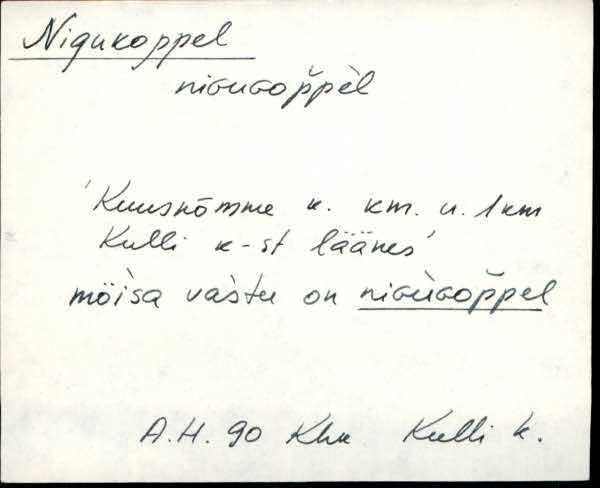 Nigukoppel
niɢuɢop̆pèl
'Kuusnõmme k. km. u. 1km
Kulli k-st läänes'
möìsa vàstu on niɢùɢop̆pel
A.H. 90 Khk Kulli k.